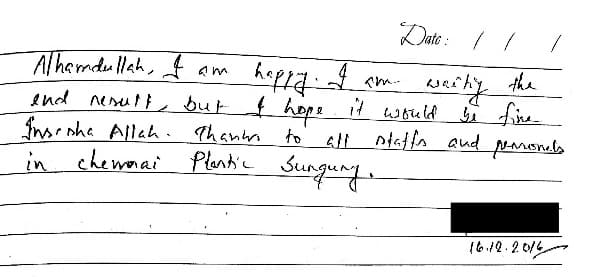 Date: / / /
Alhamdullah, I am happy. I am waitig the
end result, but I hope it would be fine
Insesha Allah. Thanks to all staffs and personels
in chennai Plastic Surgury.
16.12.2016